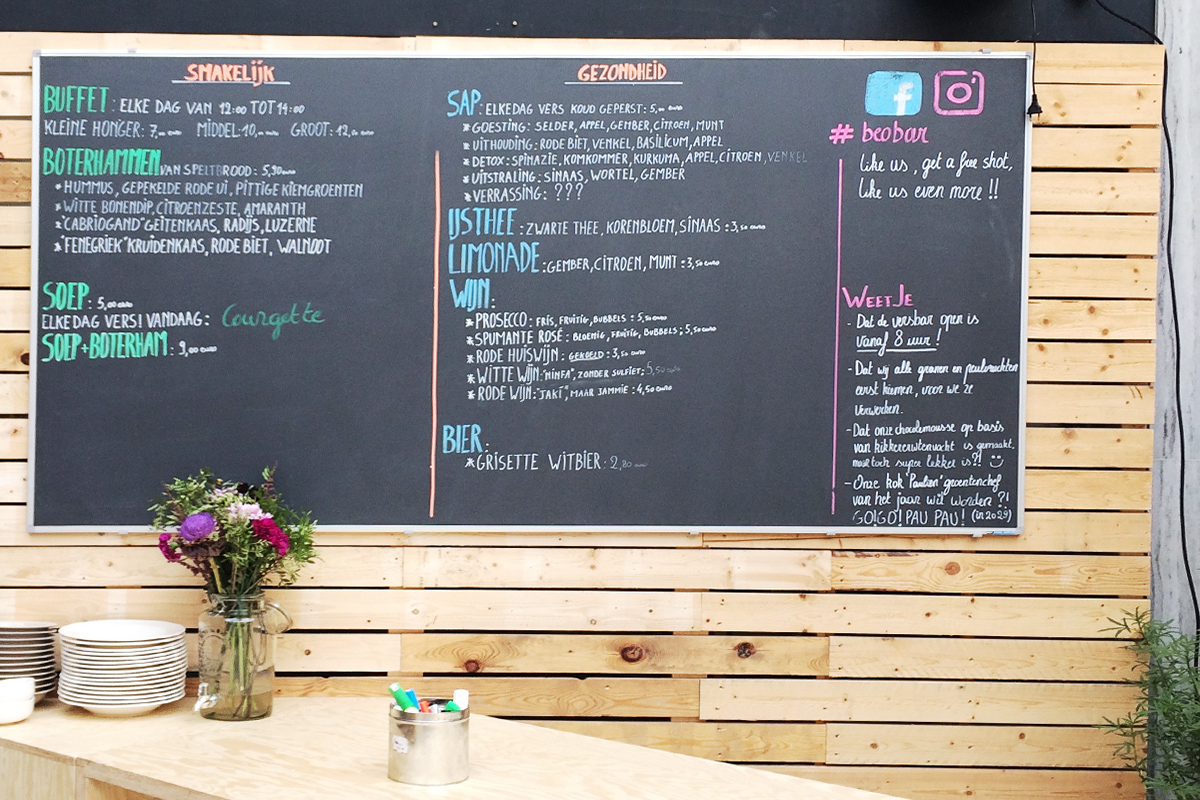 SMAKELIJK
BUFFET: ELKE DAG VAN 12:00 TOT 14:00
KLEINE HONGER: 7,00 EURO MIDDEL: 10,00 EURO GROOT: 12,00 EURO
BOTERHAMMEN VAN SPELTBROOD: 5,90 EURO
* HUMMUS, GEPEKELDE RODE UI, PITTIGE KIEMGROENTEN
* WITTE BONENDIP, CITROENZESTE, AMARANTH
* "CABRIOGAND" GEITENKAAS, RADIJS, LUZERNE
* "FENEGRIEK" KRUIDENKAAS, RODE BIET, WALNOOT
SOEP: 5,00 EURO
ELKE DAG VERS! VANDAAG: Courgette
SOEP+BOTERHAM: 9,00 EURO
GEZONDHEID
SAP: ELKE DAG VERS KOUD GEPERST: 5,00 EURO
* GOESTING: SELDER, APPEL, GEMBER, CITROEN, MUNT
* UITHOUDING: RODE BIET, VENKEL, BASILICUM, APPEL
* DETOX: SPINAZIE, KOMKOMMER, KURKUMA, APPEL, CITROEN, VENKEL
* UITSTRALING: SINAAS, WORTEL, GEMBER
* VERRASSING: ???
IJSTHEE: ZWARTE THEE, KORENBLOEM, SINAAS: 3,50 EURO
LIMONADE: GEMBER, CITROEN, MUNT: 3,50 EURO
WIJN:
* PROSECCO: FRIS, FRUITIG, BUBBELS: 5,50 EURO
* SPUMANTE ROSÉ: BLOEMIG, FRUITIG, BUBBELS: 5,50 EURO
* RODE HUISWIJN: GEKOELD: 3,50 EURO
* WITTE WIJN: "NINFA", ZONDER SULFIET: 5,50 EURO
* RODE WIJN: "JAKI", MAAR JAMMIE: 4,50 EURO
BIER:
* GRISETTE WITBIER: 2,80 EURO
f
# beobar
like us, get a free shot,
like us even more !!
WEETJE
- Dat de versbar open is
vanaf 8 uur!
- Dat wij alle granen en peulvruchten
eerst kiemen, voor we ze
verwerken.
- Dat onze chocolemousse op basis
van kikkererwtenvocht is gemaakt,
maar toch super lekker is?!
- Onze kok 'Paulien' groentenchef
van het jaar wil worden?!
GO!GO! PAU PAU! (in 2029)